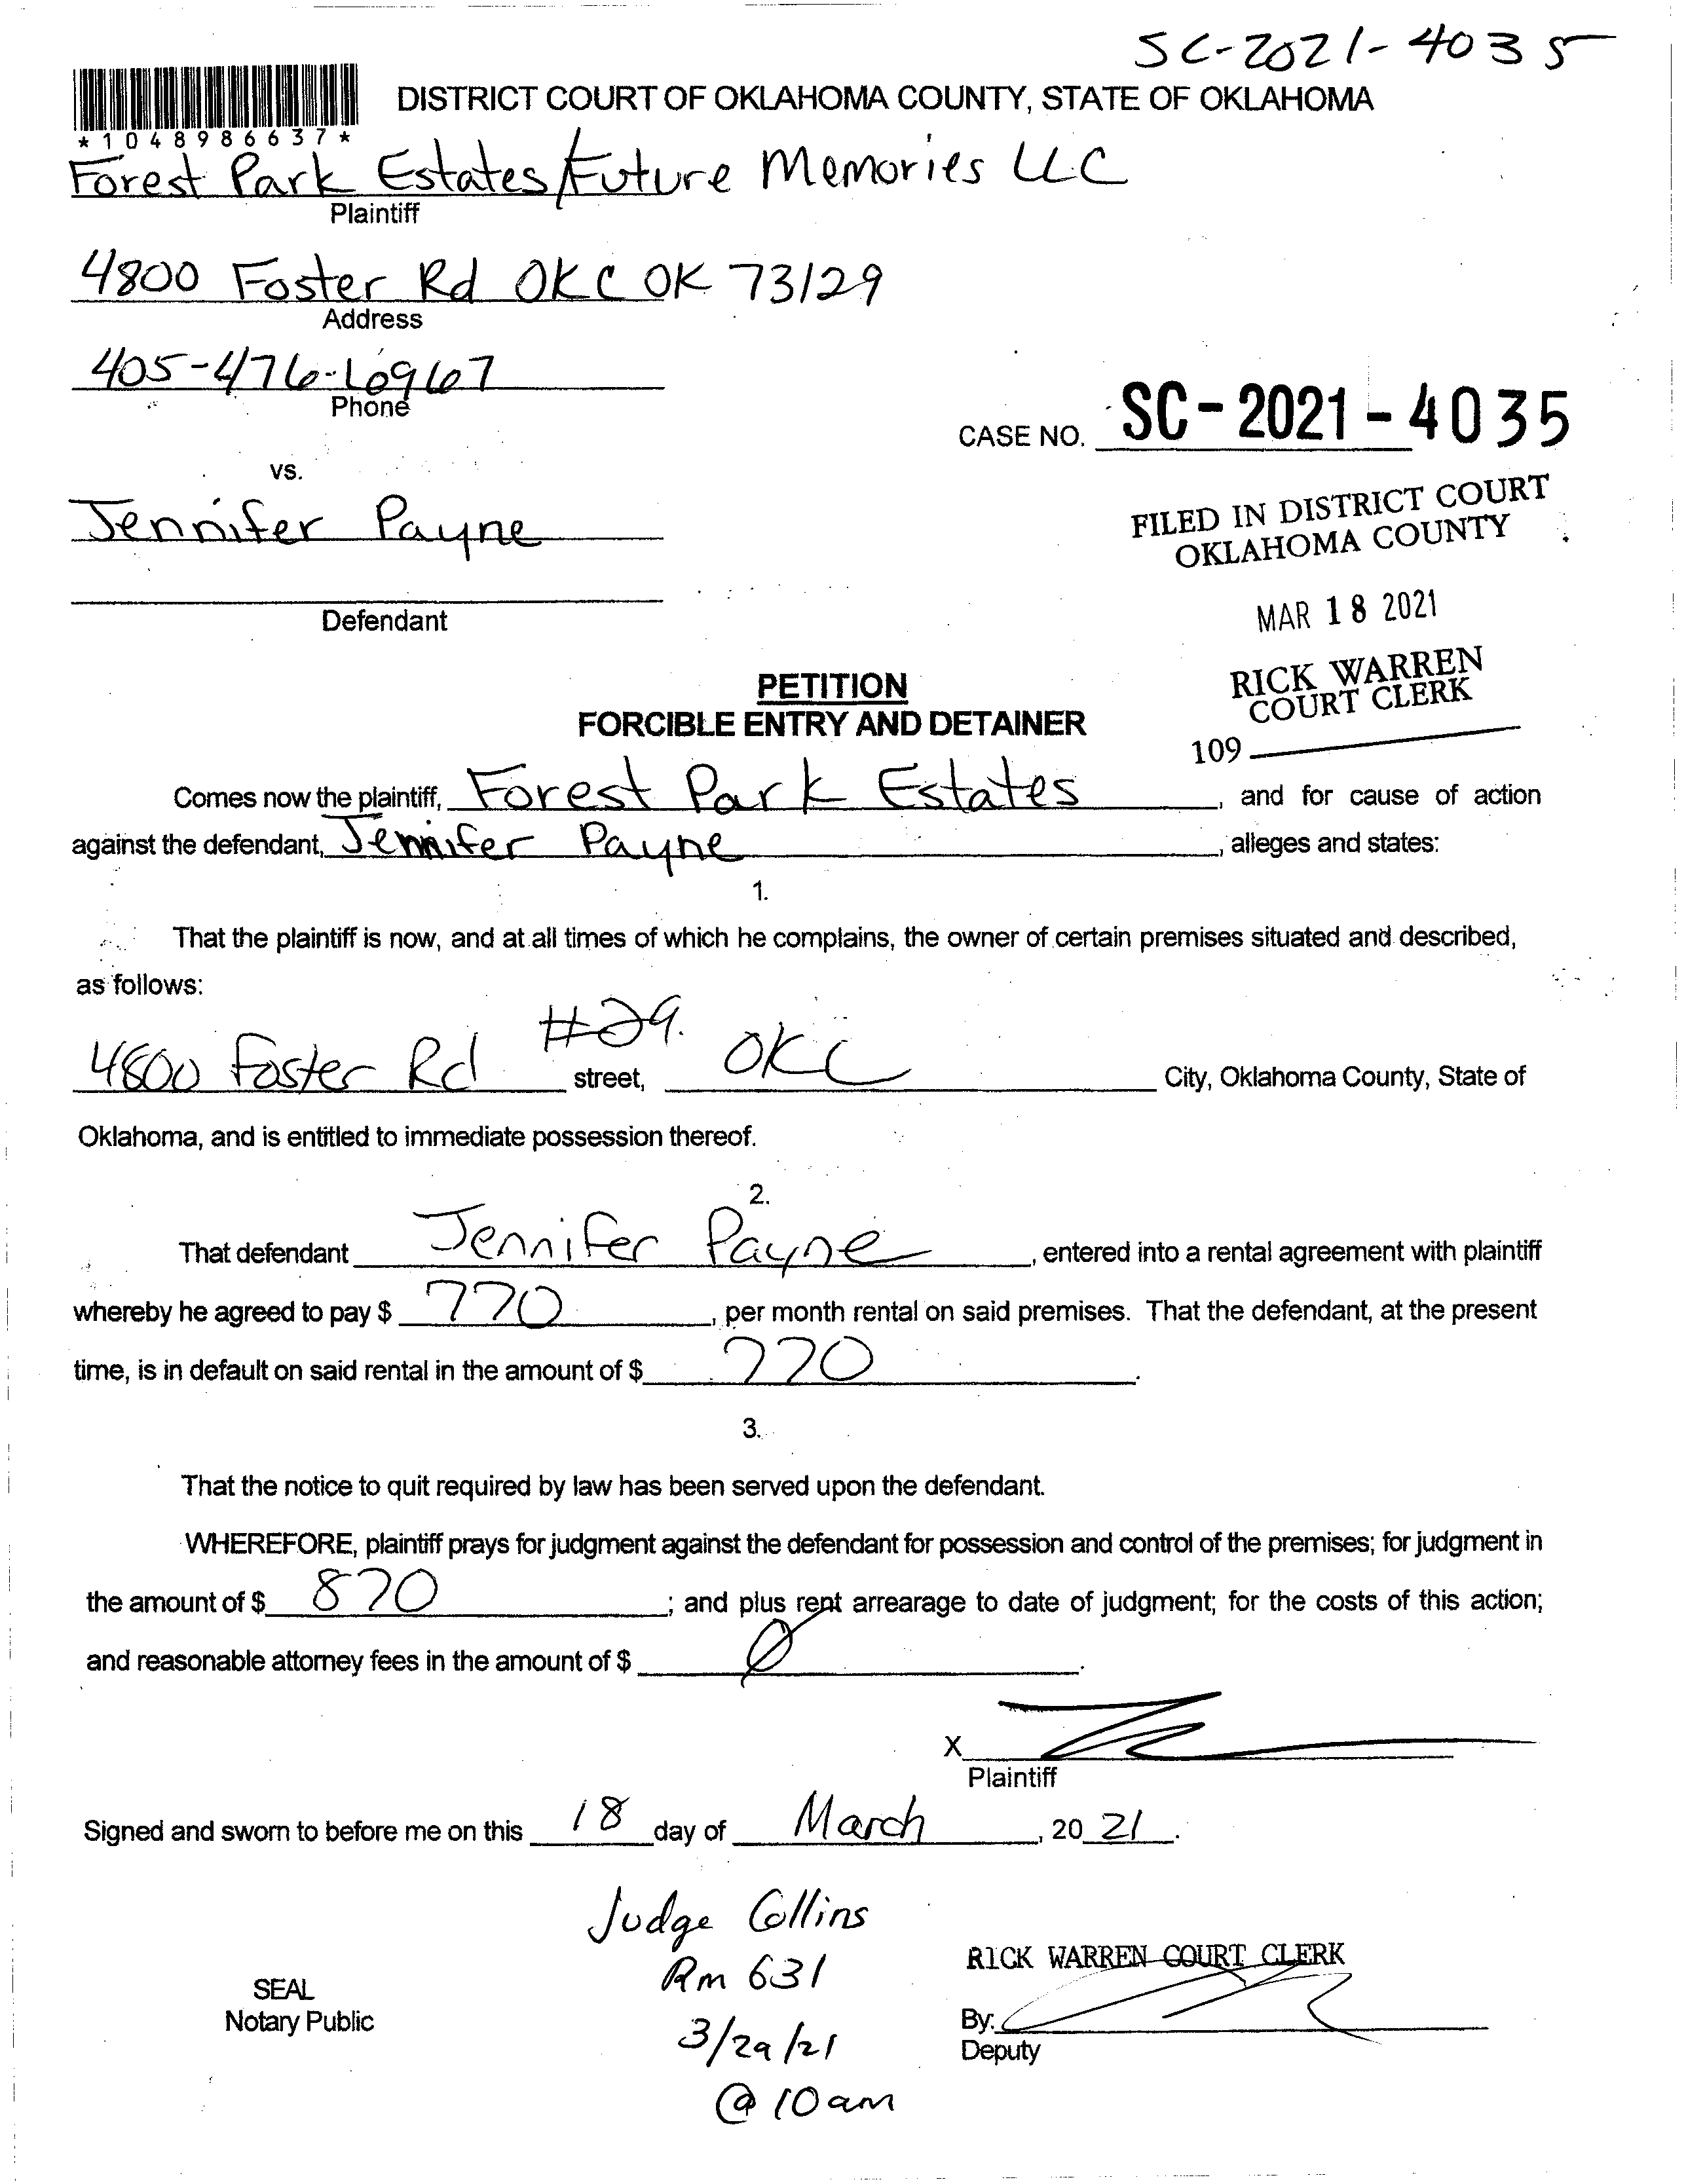 SC-2021-4035
DISTRICT COURT OF OKLAHOMA COUNTY, STATE OF OKLAHOMA
*1048986637*
Forest Park Estates/Future Memories LLC
Plaintiff
4800 Foster Rd OKC OK 73129
Address
405-476-6967
Phone
CASE NO. SC-2021-4035
vs.
Jennifer Payne
FILED IN DISTRICT COURT
OKLAHOMA COUNTY
Defendant
MAR 18 2021
RICK WARREN
COURT CLERK
109
PETITION
FORCIBLE ENTRY AND DETAINER
Comes now the plaintiff, Forest Park Estates, and for cause of action
against the defendant, Jennifer Payne, alleges and states:
1.
That the plaintiff is now, and at all times of which he complains, the owner of certain premises situated and described,
as follows:
4800 Foster Rd #29. street, OKC City, Oklahoma County, State of
Oklahoma, and is entitled to immediate possession thereof.
2.
That defendant Jennifer Payne, entered into a rental agreement with plaintiff
whereby he agreed to pay $ 770, per month rental on said premises. That the defendant, at the present
time, is in default on said rental in the amount of $ 770.
3.
That the notice to quit required by law has been served upon the defendant.
WHEREFORE, plaintiff prays for judgment against the defendant for possession and control of the premises; for judgment in
the amount of $ 870; and plus rent arrearage to date of judgment; for the costs of this action;
and reasonable attorney fees in the amount of $ Ø.
X
Plaintiff
Signed and sworn to before me on this 18 day of March, 20 21.
Judge Collins
Rm 631
3/29/21
@ 10am
SEAL
Notary Public
RICK WARREN COURT CLERK
By:
Deputy